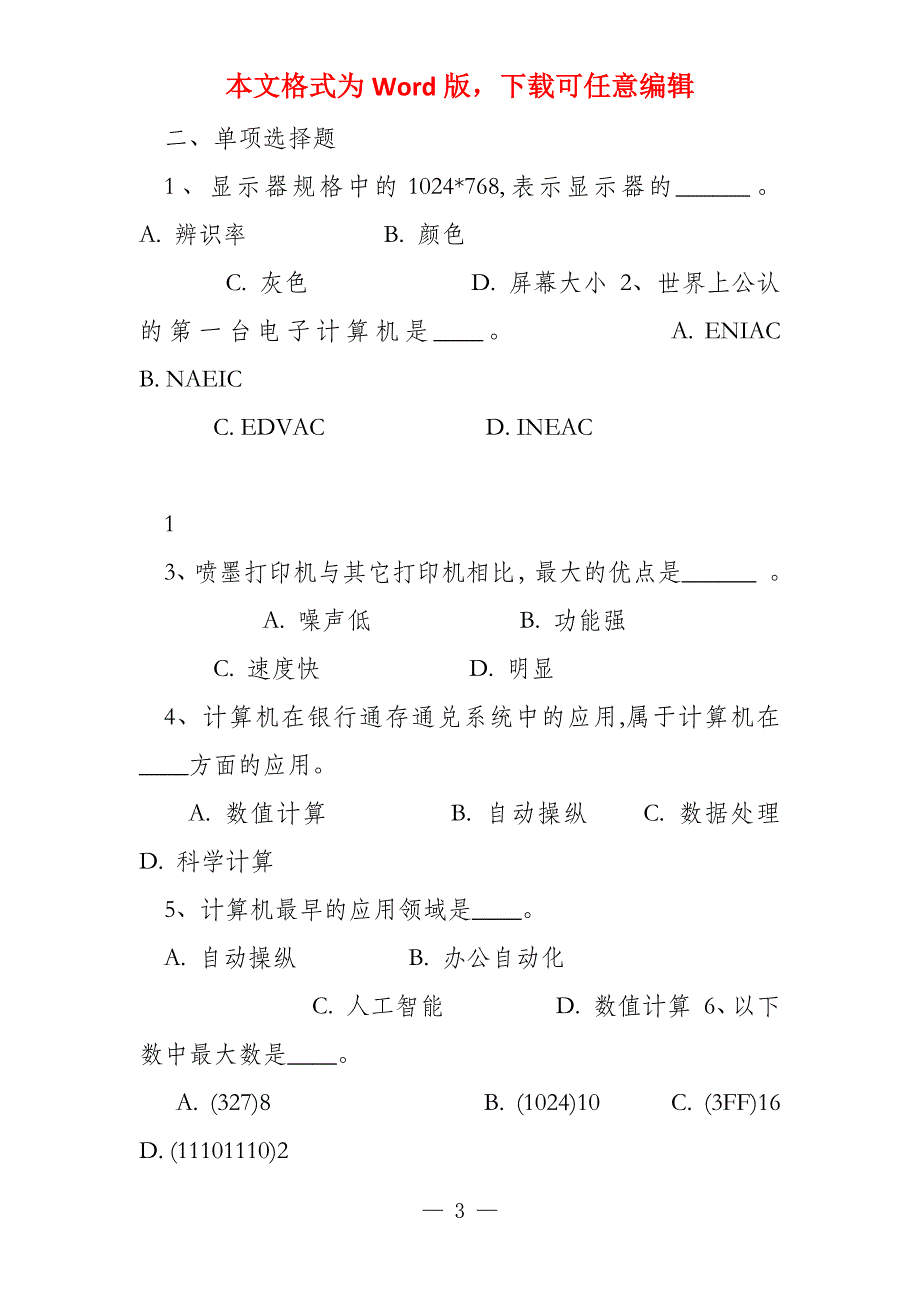 本文格式为 Word 版，下载可任意编辑
二、单项选择题
1、显示器规格中的 1024*768,表示显示器的______。
A. 辨识率 B. 颜色
C. 灰色 D. 屏幕大小 2、世界上公认
的第一台电子计算机是____。 A. ENIAC
B. NAEIC
C. EDVAC D. INEAC
1
3、喷墨打印机与其它打印机相比，最大的优点是______ 。
A. 噪声低 B. 功能强
C. 速度快 D. 明显
4、计算机在银行通存通兑系统中的应用,属于计算机在
____方面的应用。
A. 数值计算 B. 自动操纵 C. 数据处理
D. 科学计算
5、计算机最早的应用领域是____。
A. 自动操纵 B. 办公自动化
C. 人工智能 D. 数值计算 6、以下
数中最大数是____。
A. (327)8 B. (1024)10 C. (3FF)16
D. (11101110)2
— 3 —